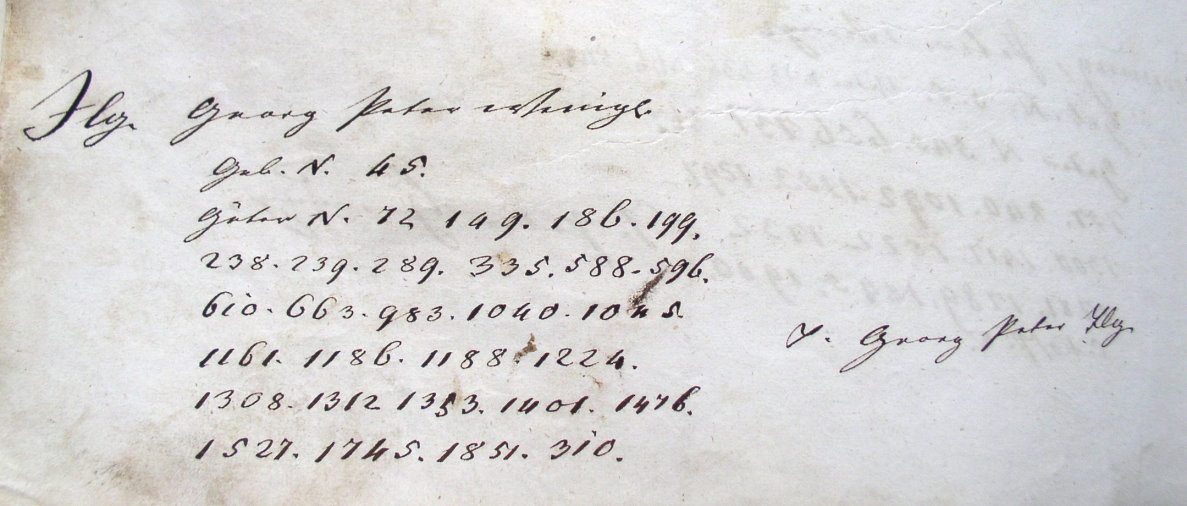 Ilg. Georg Peter Wenigs.
Geb. N. 45.
Güter N. 72 149. 186. 199.
238. 239. 289. 335. 588. 596.
610. 663. 983. 1040. 1045.
1161. 1186. 1188. 1224.
1308. 1312 1353. 1401. 1476.
1527. 1745. 1851. 310.
T. Georg Peter Ilg.